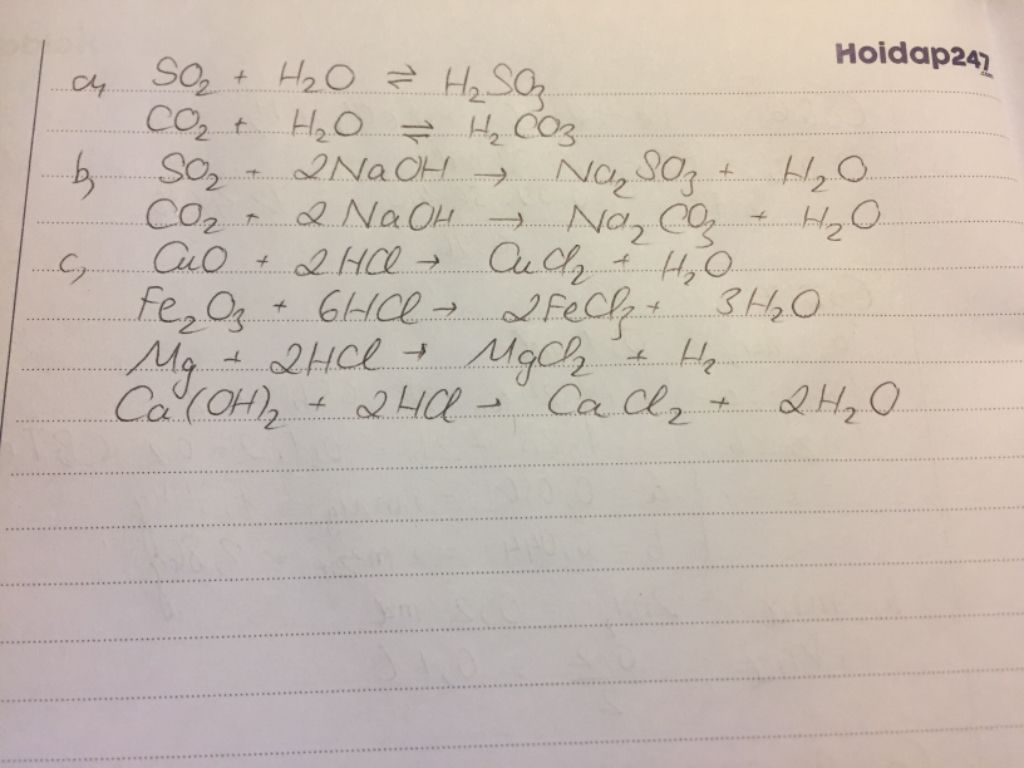 Hoidap247.com
a, SO₂ + H₂O ⇌ H₂SO₃
CO₂ + H₂O ⇌ H₂CO₃
b, SO₂ + 2NaOH → Na₂SO₃ + H₂O
CO₂ + 2NaOH → Na₂CO₃ + H₂O
c, CuO + 2HCl → CuCl₂ + H₂O
Fe₂O₃ + 6HCl → 2FeCl₃ + 3H₂O
Mg + 2HCl → MgCl₂ + H₂
Ca(OH)₂ + 2HCl → CaCl₂ + 2H₂O